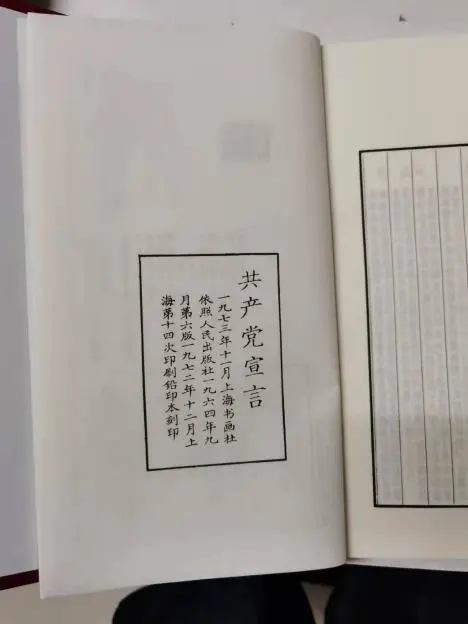 共产党宣言
一九七三年十一月上海书画社
依照人民出版社一九六四年九
月第六版一九七二年十二月上
海第十四次印刷铅印本刻印